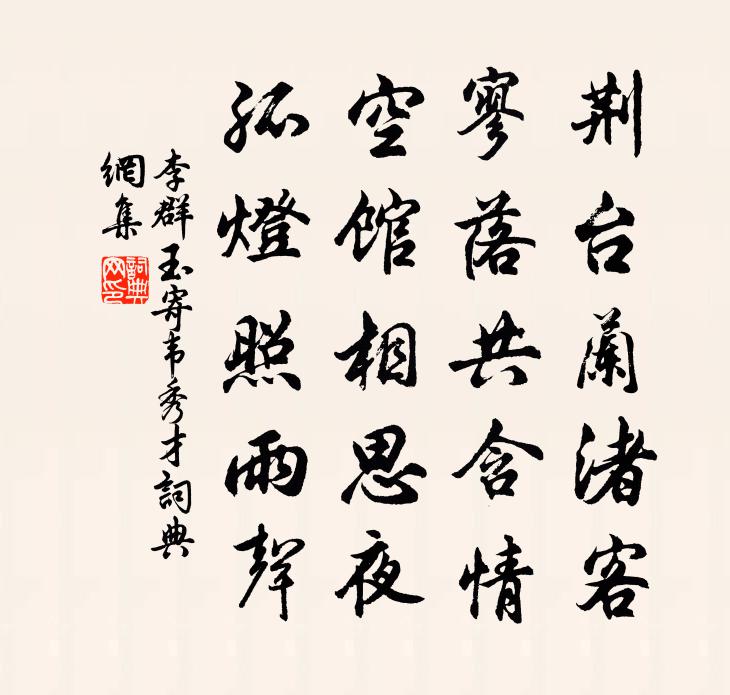 荆台蘭渚客
寥落共含情
空館相思夜
孤燈照雨聲
李群玉寄韦秀才詞典
網集
詞典網印